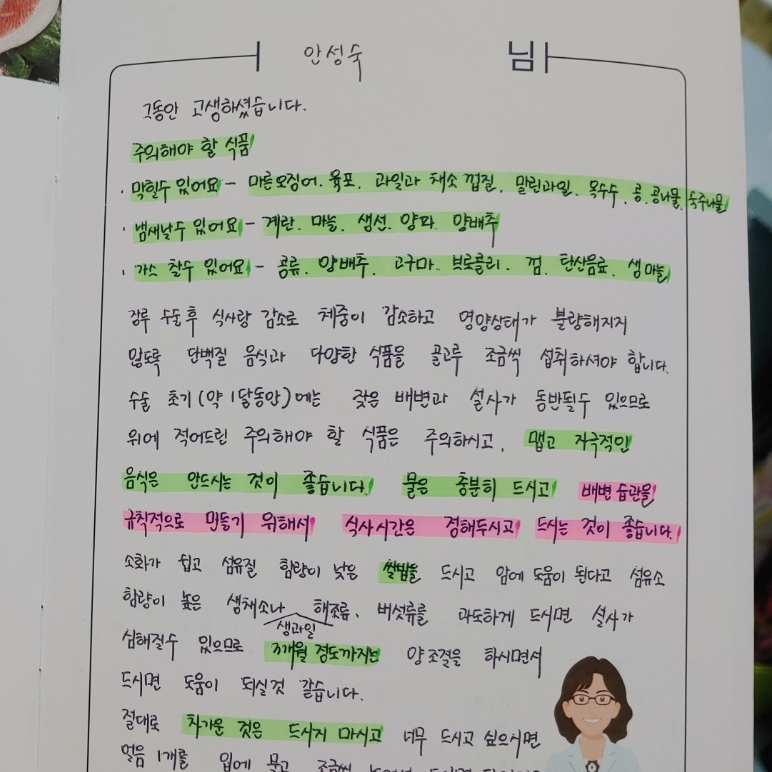 안성숙 님
그동안 고생하셨습니다.
주의해야 할 식품
· 막힐수 있어요 - 마른오징어. 육포. 과일과 채소 껍질. 말린과일. 옥수수. 콩. 콩나물. 숙주나물
· 냄새날수 있어요 - 계란. 마늘. 생선. 양파. 양배추
· 가스 찰수 있어요 - 콩류. 양배추. 고구마. 브로콜리. 껌. 탄산음료. 생마늘
장루 수술후 식사량 감소로 체중이 감소하고 영양상태가 불량해지지
않도록 단백질 음식과 다양한 식품을 골고루 조금씩 섭취하셔야 합니다.
수술 초기(약 1달동안)에는 잦은 배변과 설사가 동반될수 있으므로
위에 적어드린 주의해야 할 식품은 주의하시고, 맵고 자극적인
음식은 안드시는 것이 좋습니다. 물은 충분히 드시고 배변 습관을
규칙적으로 만들기 위해서 식사시간은 정해두시고 드시는 것이 좋습니다.
소화가 쉽고 섬유질 함량이 낮은 쌀밥을 드시고 암에 도움이 된다고 섬유소
함량이 높은 생채소나 해조류. 버섯류를 과도하게 드시면 설사가
생과일
심해질수 있으므로 3개월 정도까지는 양 조절을 하시면서
드시면 도움이 되실것 같습니다.
절대로 차가운 것은 드시지 마시고 너무 드시고 싶으시면
얼음 1개를 입에 물고 조금씩